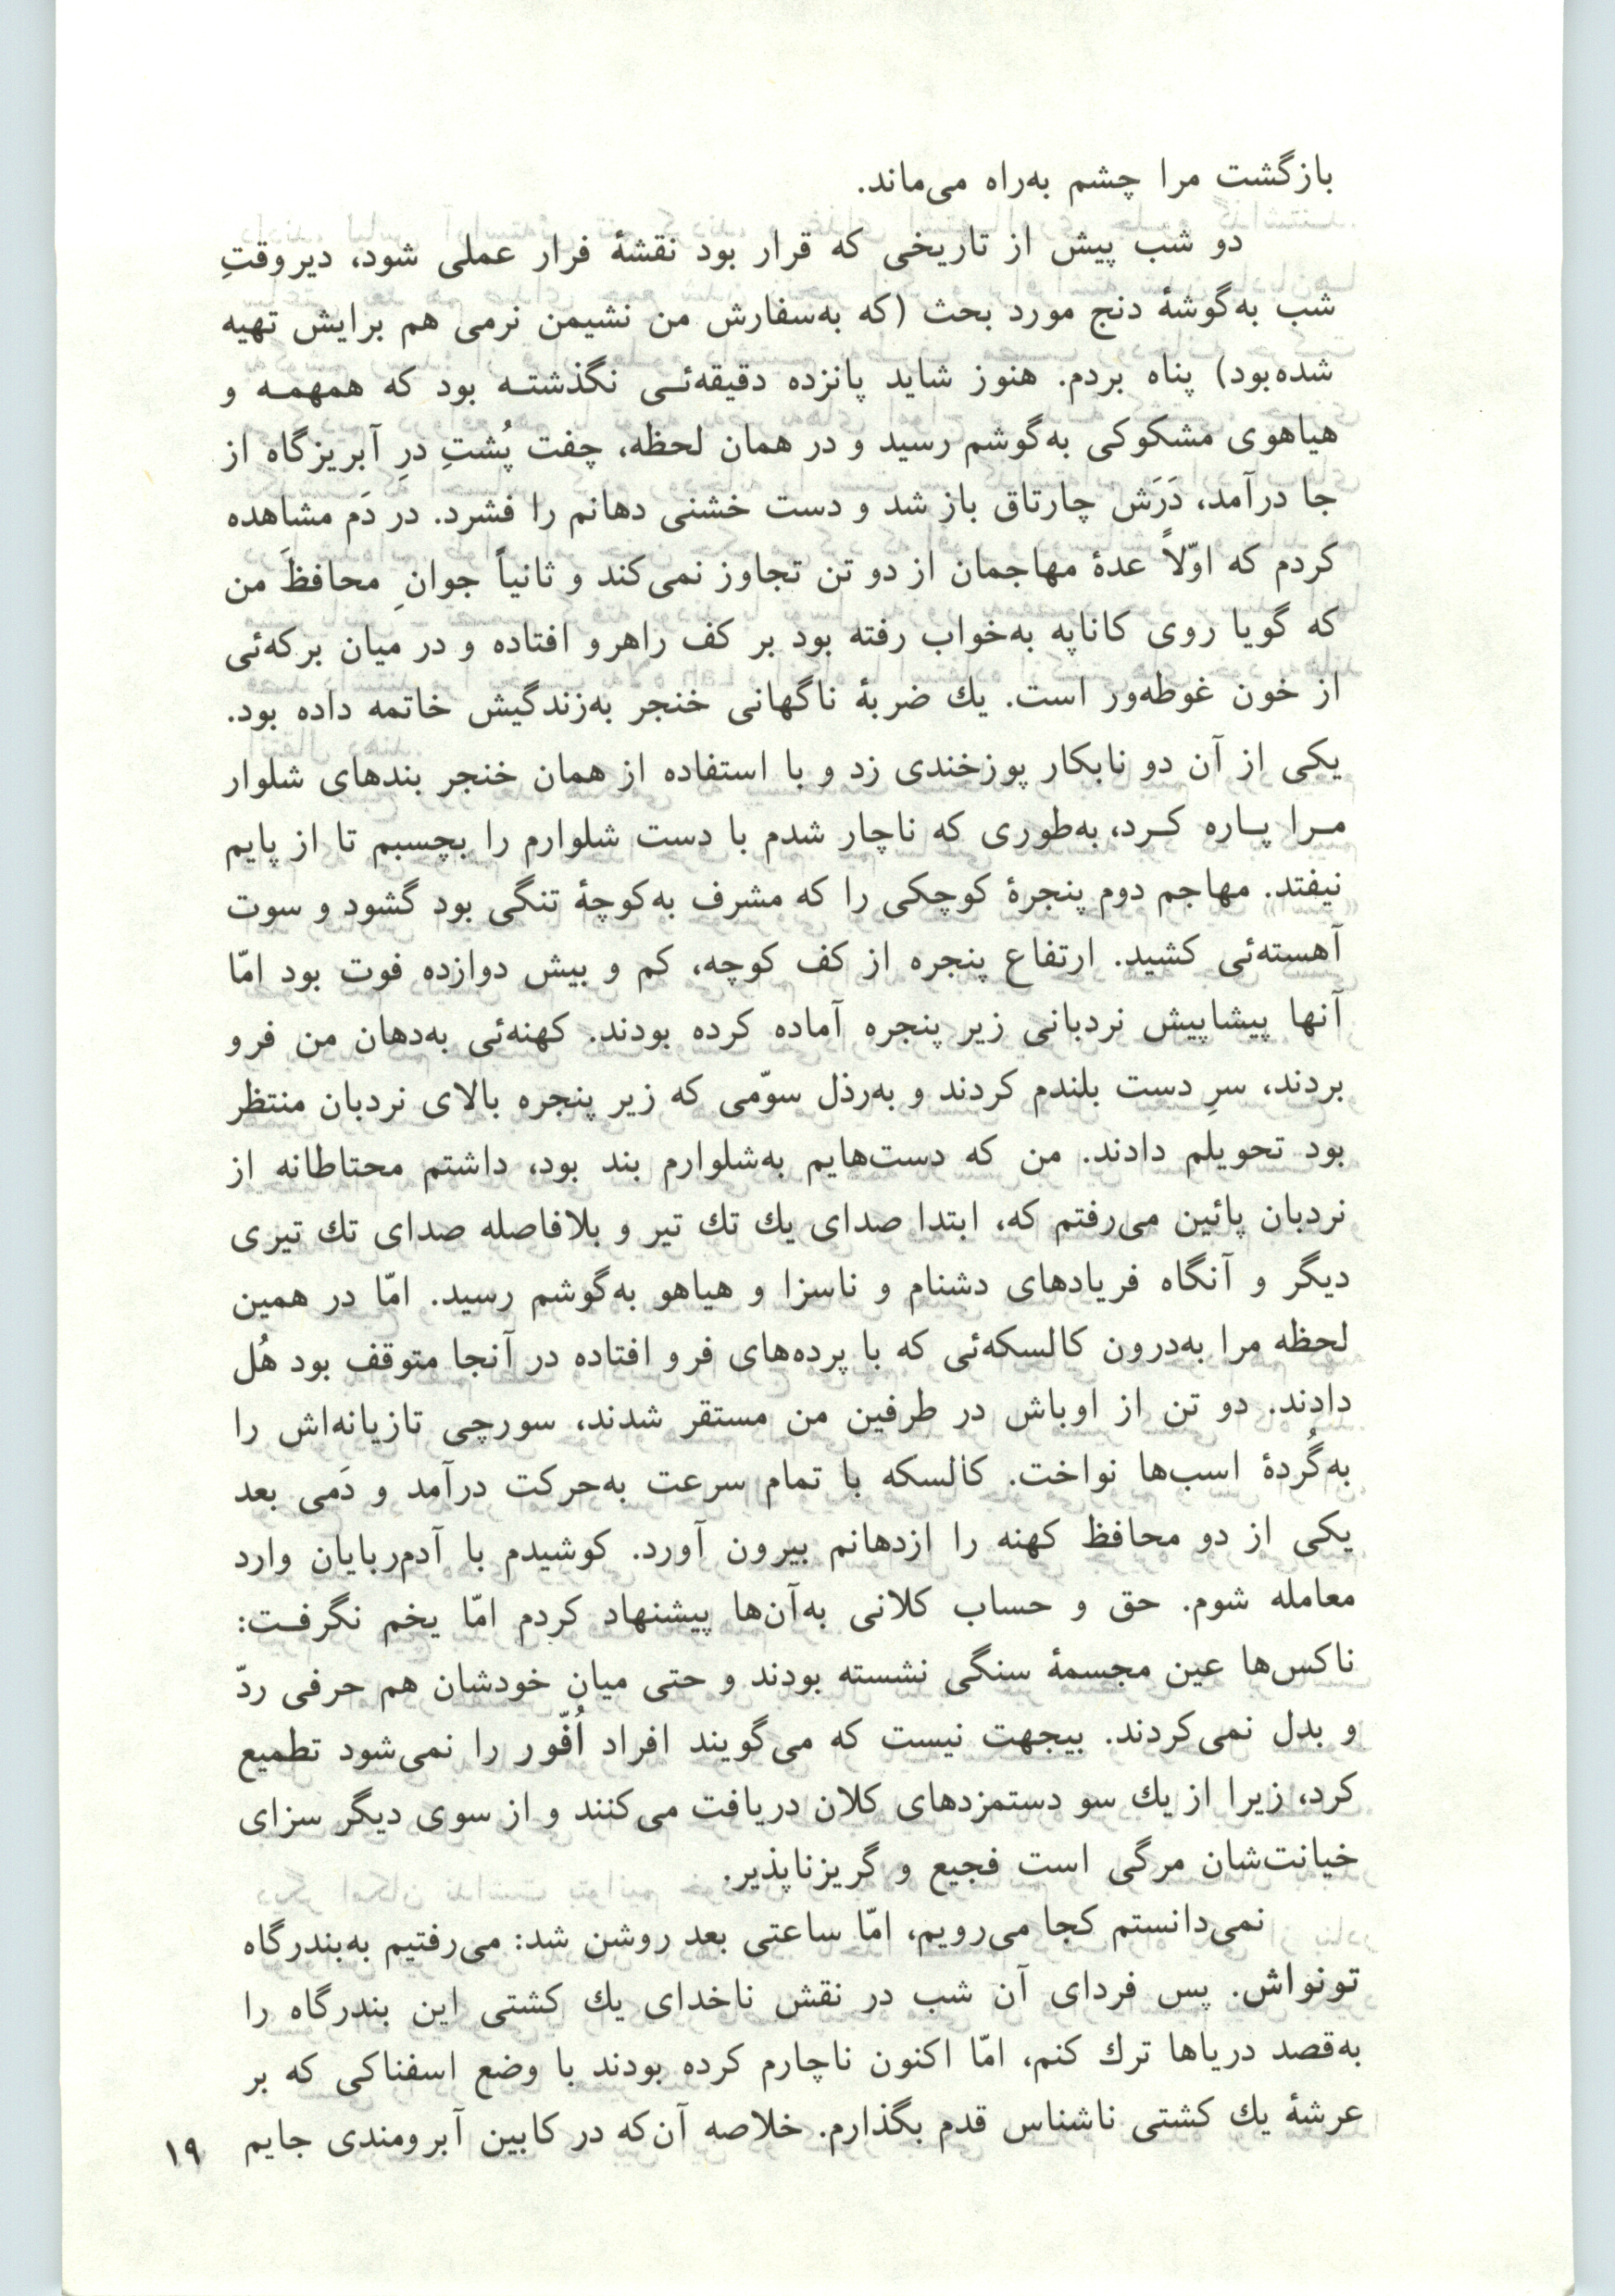 بازگشت مرا چشم به‌راه می‌ماند.
دو شب پیش از تاریخی که قرار بود نقشهٔ فرار عملی شود، دیروقتِ
شب به‌گوشهٔ دنج مورد بحث (که به‌سفارش من نشیمن نرمی هم برایش تهیه
شده‌بود) پناه بردم. هنوز شاید پانزده دقیقه‌ئـی نگذشتـه بود که همهمـه و
هیاهوی مشکوکی به‌گوشم رسید و در همان لحظه، چفت پُشتِ درِ آبریزگاه از
جا درآمد، دَرَش چارتاق باز شد و دست خشنی دهانم را فشرد. در دَم مشاهده
کردم که اوّلاً عدهٔ مهاجمان از دو تن تجاوز نمی‌کند و ثانیاً جوانِ محافظَ من
که گویا روی کاناپه به‌خواب رفته بود بر کف راهرو افتاده و در میان برکه‌ئی
از خون غوطه‌ور است. یك ضربهٔ ناگهانی خنجر به‌زندگیش خاتمه داده بود.
یکی از آن دو نابکار پوزخندی زد و با استفاده از همان خنجر بندهای شلوار
مـرا پـاره کـرد، به‌طوری که ناچار شدم با دست شلوارم را بچسبم تا از پایم
نیفتد. مهاجم دوم پنجرهٔ کوچکی را که مشرف به‌کوچهٔ تنگی بود گشود و سوت
آهسته‌ئی کشید. ارتفاع پنجره از کف کوچه، کم و بیش دوازده فوت بود امّا
آنها پیشاپیش نردبانی زیر پنجره آماده کرده بودند. کهنه‌ئی به‌دهان من فرو
بردند، سرِ دست بلندم کردند و به‌رذل سوّمی که زیر پنجره بالای نردبان منتظر
بود تحویلم دادند. من که دست‌هایم به‌شلوارم بند بود، داشتم محتاطانه از
نردبان پائین می‌رفتم که، ابتدا صدای یك تك تیر و بلافاصله صدای تك تیری
دیگر و آنگاه فریادهای دشنام و ناسزا و هیاهو به‌گوشم رسید. امّا در همین
لحظه مرا به‌درون کالسکه‌ئی که با پرده‌های فرو افتاده در آنجا متوقف بود هُل
دادند. دو تن از اوباش در طرفین من مستقر شدند، سورچی تازیانه‌اش را
به‌گُردهٔ اسب‌ها نواخت. کالسکه با تمام سرعت به‌حرکت درآمد و دَمی بعد
یکی از دو محافظ کهنه را ازدهانم بیرون آورد. کوشیدم با آدم‌ربایان وارد
معامله شوم. حق و حساب کلانی به‌آن‌ها پیشنهاد کردم امّا یخم نگرفـت:
ناکس‌ها عین مجسمهٔ سنگی نشسته بودند و حتی میان خودشان هم حرفی ردّ
و بدل نمی‌کردند. بیجهت نیست که می‌گویند افراد اُفّور را نمی‌شود تطمیع
کرد، زیرا از یك سو دستمزدهای کلان دریافت می‌کنند و از سوی دیگر سزای
خیانت‌شان مرگی است فجیع و گریزناپذیر.
نمی‌دانستم کجا می‌رویم، امّا ساعتی بعد روشن شد: می‌رفتیم به‌بندرگاه
تونواش. پس فردای آن شب در نقش ناخدای یك کشتی این بندرگاه را
به‌قصد دریاها ترك کنم، امّا اکنون ناچارم کرده بودند با وضع اسفناکی که بر
عرشهٔ یك کشتی ناشناس قدم بگذارم. خلاصه آن‌که در کابین آبرومندی جایم
۱۹